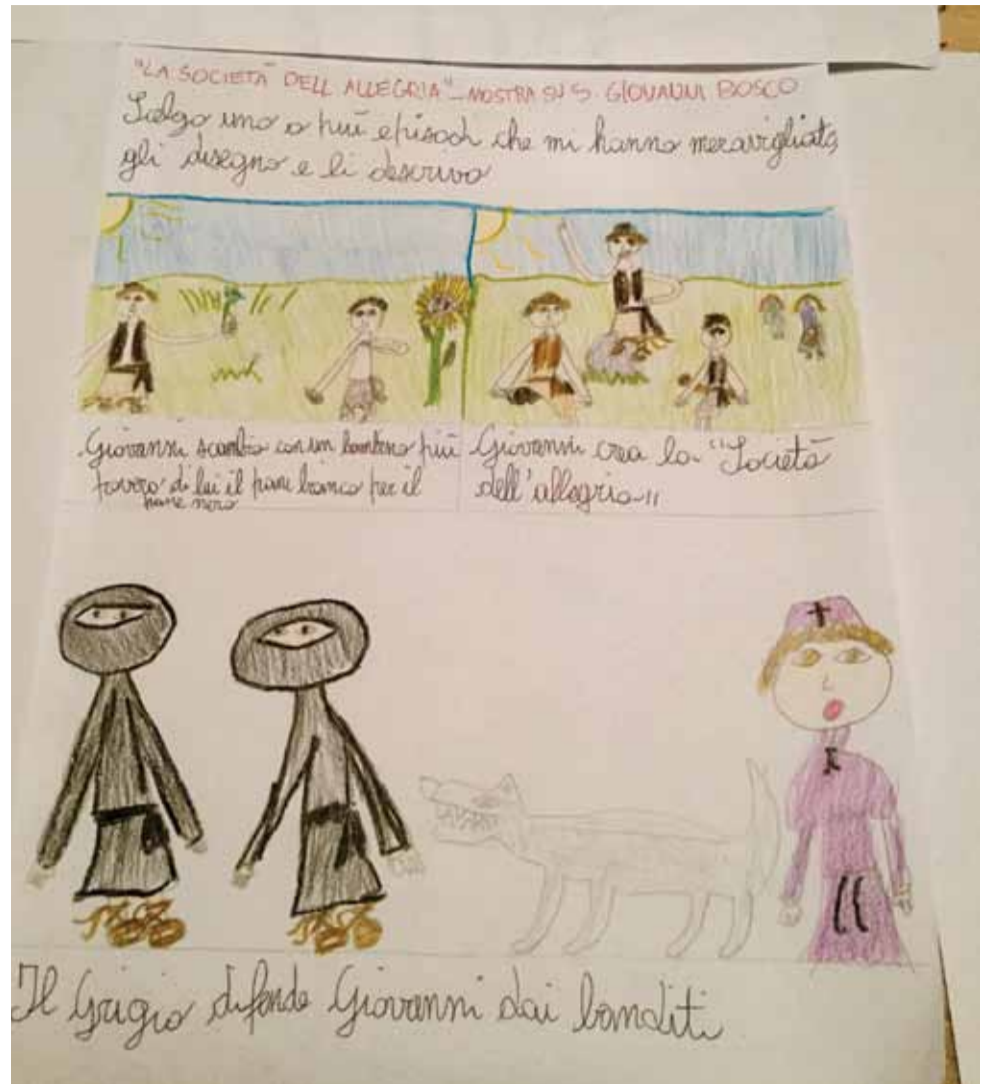 "LA SOCIETÀ DELL ALLEGRIA" _ MOSTRA SU S. GIOVANNI BOSCO
Scelgo uno o più episodi che mi hanno meravigliato,
gli disegno e li descrivo
Giovanni scambia con un bambino più
povero di lui il pane bianco per il
pane nero
Giovanni crea la "Società
dell'allegria"
Il Grigio difende Giovanni dai banditi